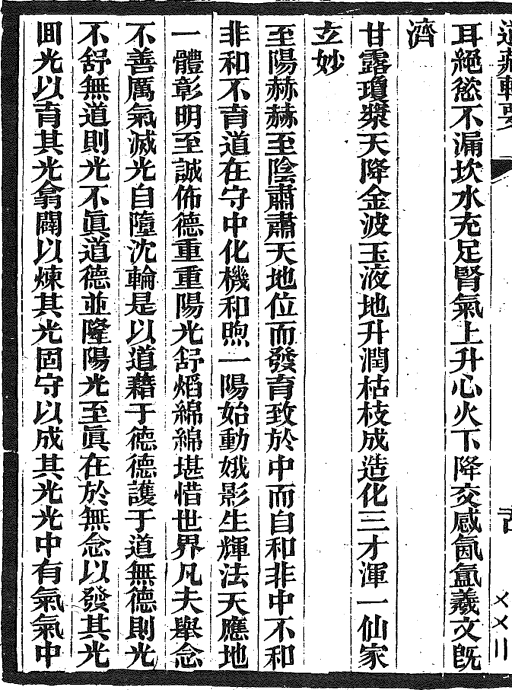 道藏輯要
耳絕慾不漏坎水充足腎氣上升心火下降交感氤氳羲文既
濟
甘露瓊漿天降金波玉液地升潤枯枝成造化三才渾一仙家
立妙
至陽赫赫至陰肅肅天地位而發育致於中而自和非中不和
非和不育道在守中化機和煦一陽始動娥影生輝法天應地
一體彰明至誠佈德重重陽光舒熖綿綿堪惜世界凡夫舉念
不善厲氣滅光自墮沈輪是以道藉于德德護于道無德則光
不舒無道則光不眞道德並隆陽光至眞在於無念以發其光
囬光以育其光翕闢以煉其光固守以成其光光中有氣氣中